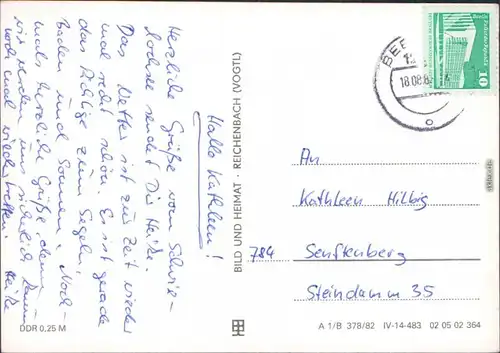 Hallo Kathleen!
Herzliche Grüße vom Schwie-
lochsee sendet Dir Heike.
Das Wetter ist zur Zeit wieder
mal recht schön. Es ist gerade
das richtige zum Segeln,
baden und Sonnen. Noch-
mals herzliche Grüße, denn
wir werden uns sicherlich
noch mal wieder treffen. Heike
DDR 0,25 M
BILD UND HEIMAT · REICHENBACH (VOGTL)
10
18.08.8
An
Kathleen Hilbig
784 Senftenberg
Steindamm 35
A 1/B 378/82 IV-14-483 02 05 02 364